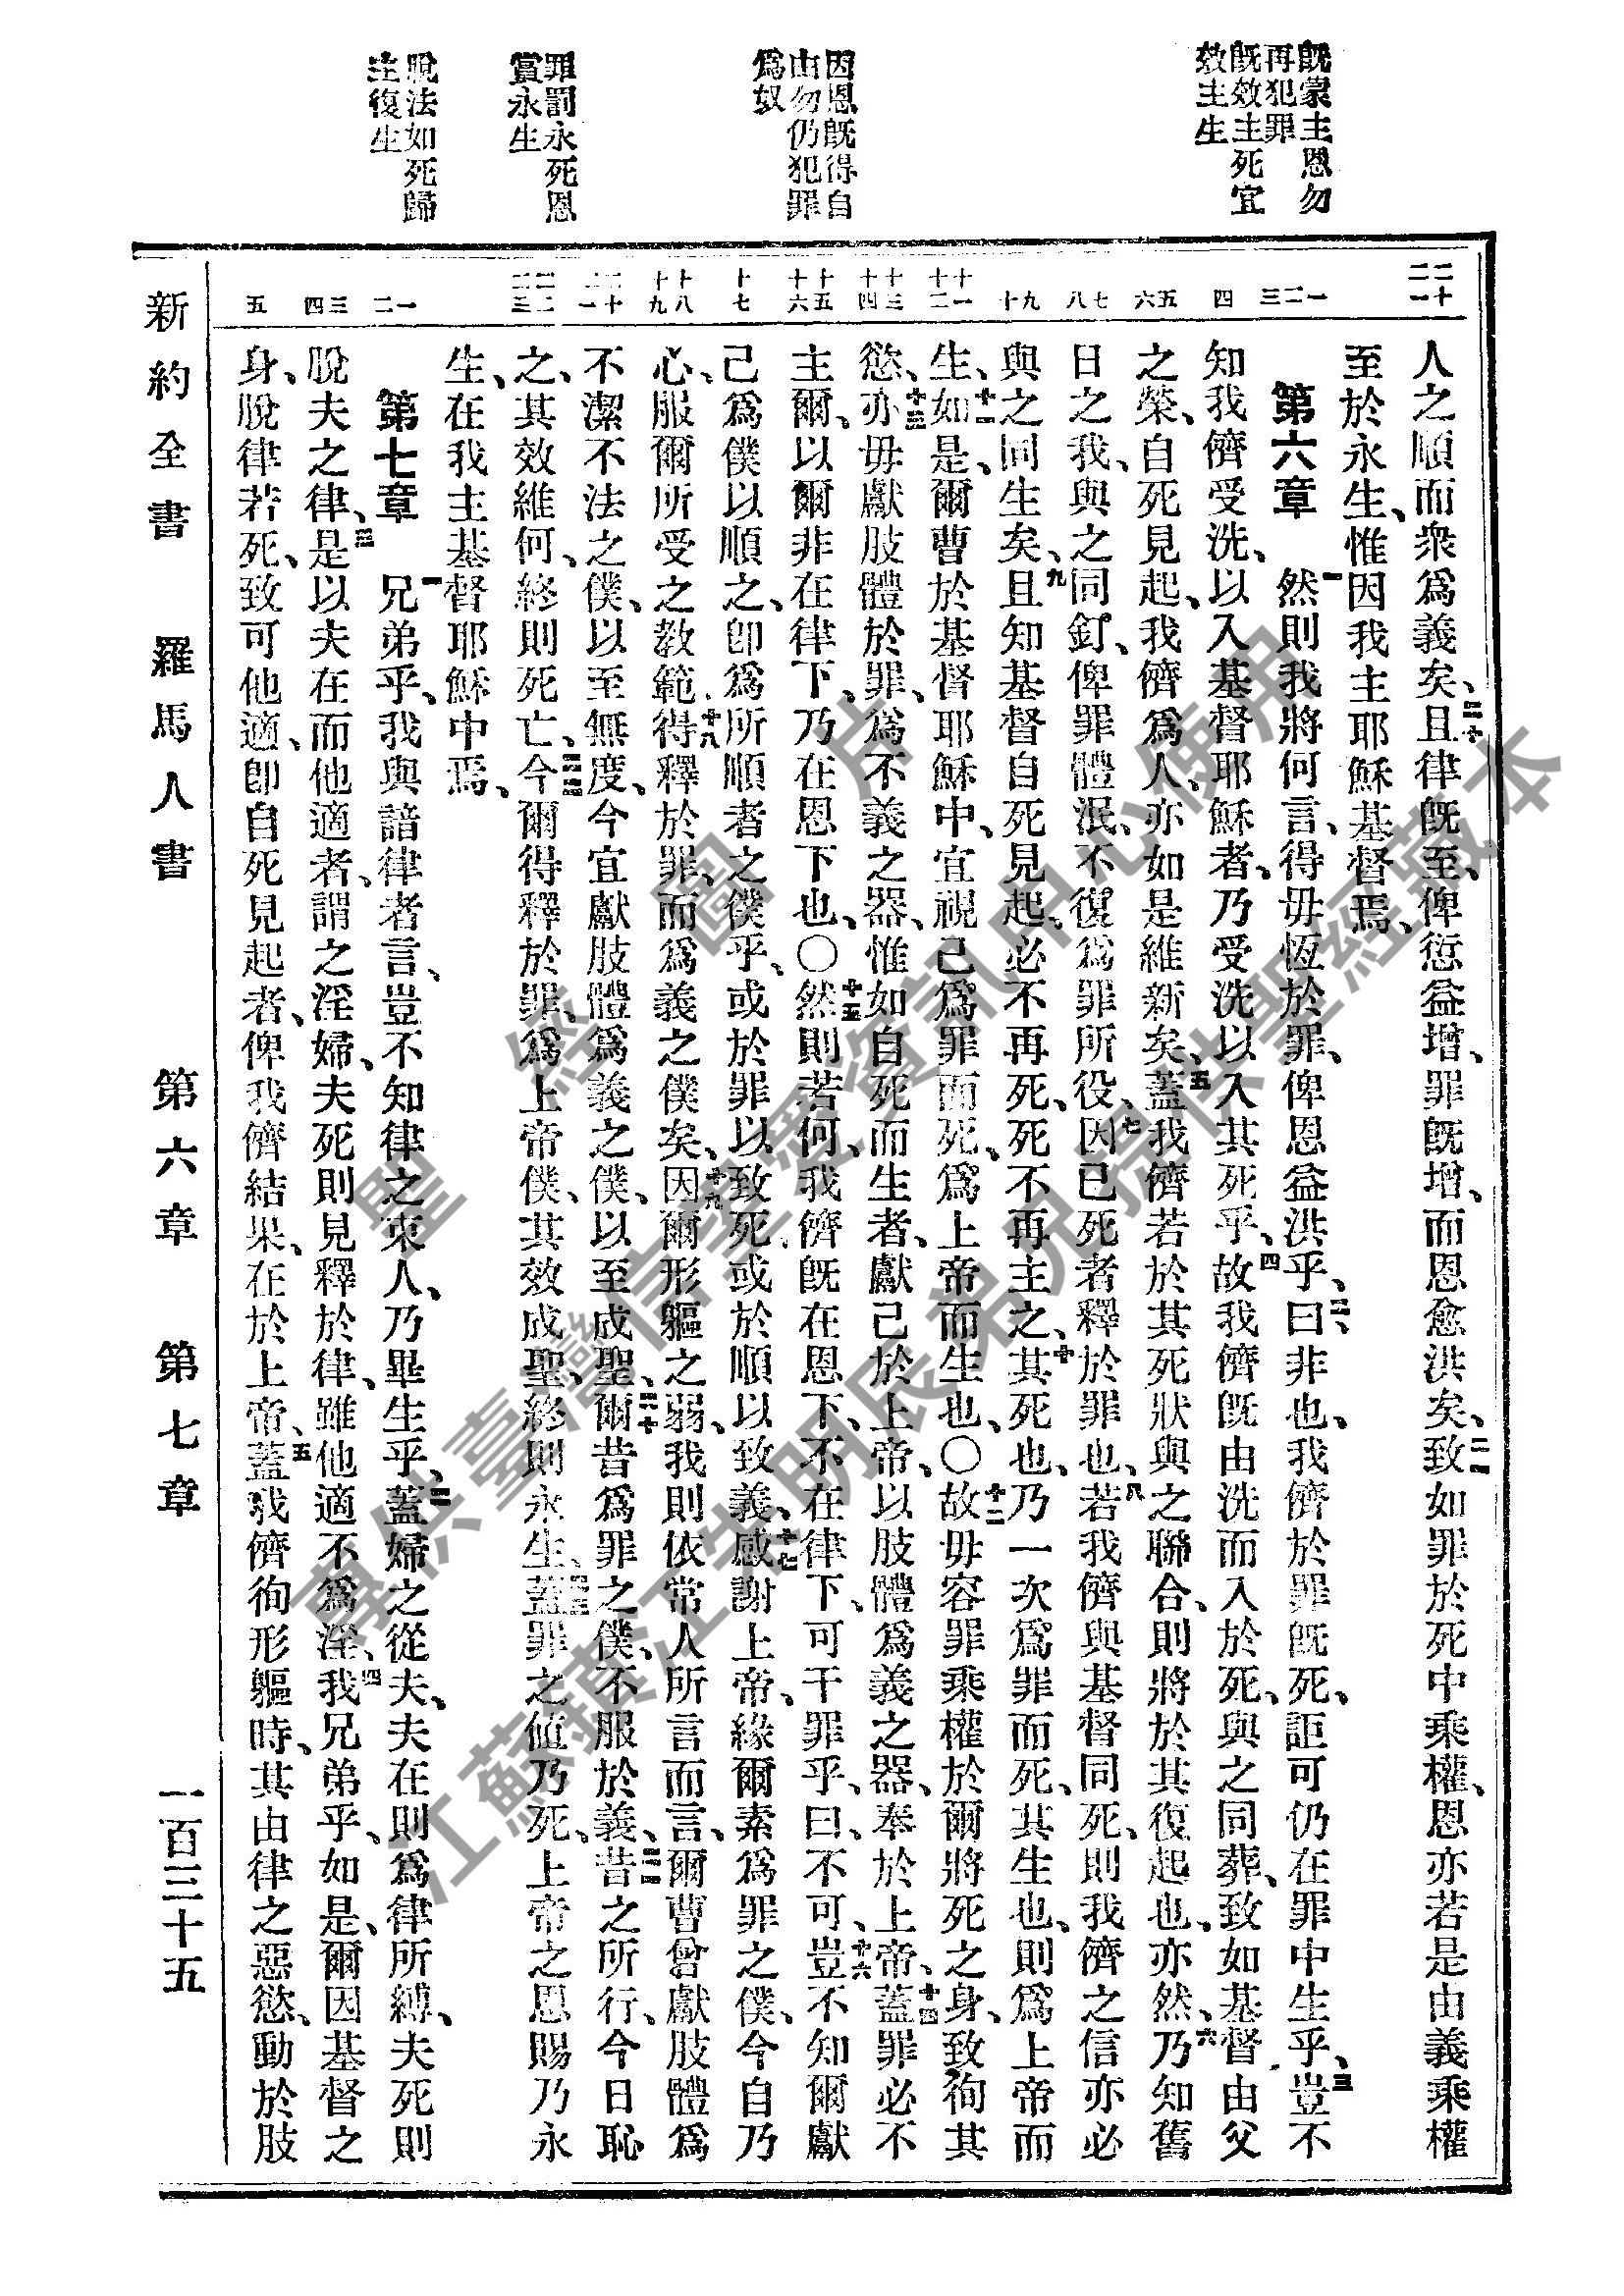 既蒙主恩勿
再犯罪
既效主死宜
效主生
因恩既得自
由勿仍犯罪
爲奴
罪罰永死恩
賞永生
脫法如死歸
主復生
二十
二一
一
二
三
四
五
六
七
八
九
十
十一
十二
十三
十四
十五
十六
十七
十八
十九
二十
二一
二二
二三
一
二
三
四
五
人之順而衆爲義矣、二十且律既至、俾愆益增、罪既增、而恩愈洪矣、二一致如罪於死中乘權、恩亦若是由義乘權
至於永生、惟因我主耶穌基督焉、
第六章 一然則我將何言、得毋恆於罪、俾恩益洪乎、二曰、非也、我儕於罪既死、詎可仍在罪中生乎、三豈不
知我儕受洗、以入基督耶穌者、乃受洗以入其死乎、四故我儕既由洗而入於死、與之同葬、致如基督由父
之榮、自死見起、我儕爲人、亦如是維新矣、五蓋我儕若於其死狀與之聯合、則將於其復起也、亦然、六乃知舊
日之我、與之同釘、俾罪體泯、不復爲罪所役、七因已死者釋於罪也、八若我儕與基督同死、則我儕之信亦必
與之同生矣、九且知基督自死見起、必不再死、死不再主之、十其死也、乃一次爲罪而死、其生也、則爲上帝而
生、十一如是、爾曹於基督耶穌中、宜視己爲罪而死、爲上帝而生也、〇十二故毋容罪乘權於爾將死之身、致徇其
慾、十三亦毋獻肢體於罪、爲不義之器、惟如自死而生者、獻己於上帝、以肢體爲義之器、奉於上帝、十四蓋罪必不
主爾、以爾非在律下、乃在恩下也、〇十五然則若何、我儕既在恩下、不在律下、可干罪乎、曰、不可、十六豈不知爾獻
己爲僕以順之、卽爲所順者之僕乎、或於罪以致死、或於順以致義、十七感謝上帝、緣爾素爲罪之僕、今自乃
心、服爾所受之教範、十八得釋於罪、而爲義之僕矣、十九因爾形軀之弱、我則依常人所言而言、爾曹曾獻肢體爲
不潔不法之僕、以至無度、今宜獻肢體爲義之僕、以至成聖、二十爾昔爲罪之僕、不服於義、二一昔之所行、今日恥
之、其效維何、終則死亡、二二今爾得釋於罪、爲上帝僕、其效成聖、終則永生、二三蓋罪之値乃死、上帝之恩賜乃永
生、在我主基督耶穌中焉、
第七章 一兄弟乎、我與諳律者言、豈不知律之束人、乃畢生乎、二蓋婦之從夫、夫在則爲律所縛、夫死則
脫夫之律、三是以夫在而他適者、謂之淫婦、夫死則見釋於律、雖他適不爲淫、四我兄弟乎、如是、爾因基督之
身、脫律若死、致可他適、卽自死見起者、俾我儕結果、在於上帝、五蓋我儕徇形軀時、其由律之惡慾、動於肢
新約全書 羅馬人書 第六章 第七章 一百三十五
聖經圖片
專供臺灣信望愛資訊中心使用
江蘇鎮江朱明辰弟兄提供聖經藏本